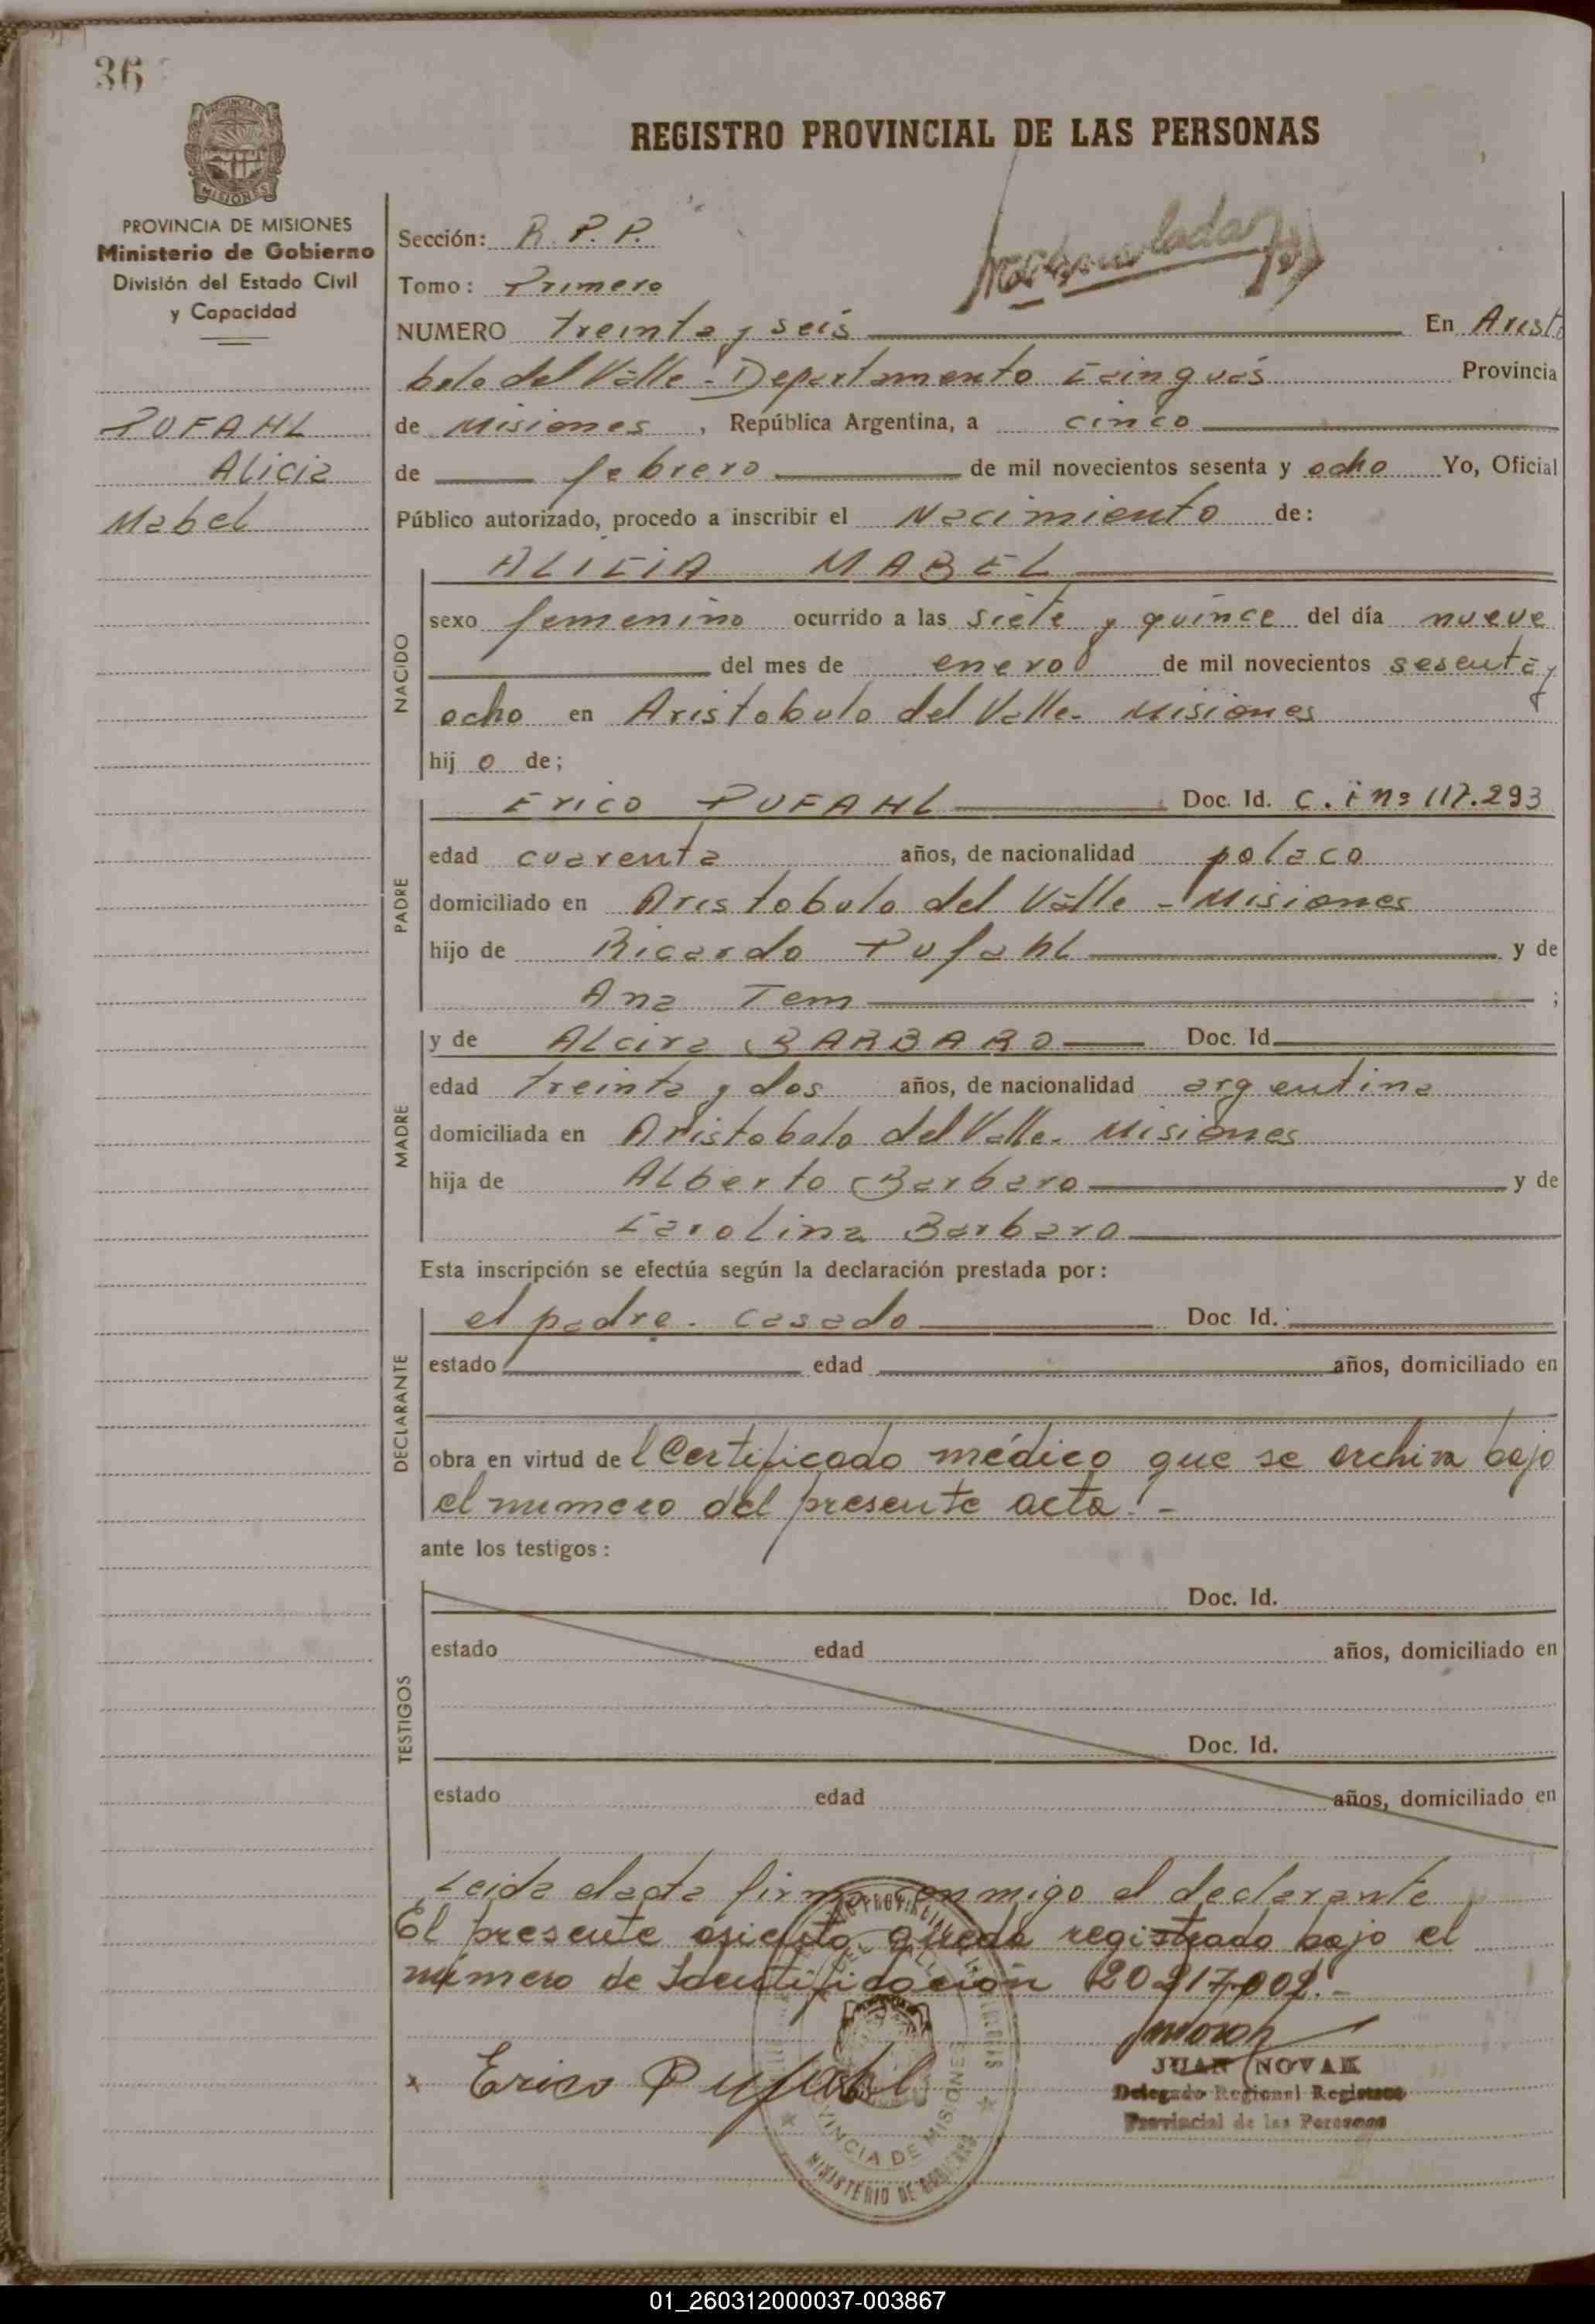 36
REGISTRO PROVINCIAL DE LAS PERSONAS
PROVINCIA DE MISIONES
Ministerio de Gobierno
División del Estado Civil
y Capacidad
PUFAHL
Alicia
Mabel
Sección: R. P. P.
Tomo: Primero
NUMERO treinta y seis En Aristo
bulo del Valle - Departamento Cainguás Provincia
de Misiones, República Argentina, a cinco
de febrero de mil novecientos sesenta y ocho Yo, Oficial
Público autorizado, procedo a inscribir el Nacimiento de:
ALICIA MABEL
NACIDO
sexo femenino ocurrido a las siete y quince del día nueve
del mes de enero de mil novecientos sesenta y
ocho en Aristobulo del Valle - Misiones
hij o de;
PADRE
Erico PUFAHL Doc. Id. C. i nº 117.293
edad cuarenta años, de nacionalidad polaco
domiciliado en Aristobulo del Valle - Misiones
hijo de Ricardo Pufahl y de
Ana Tem ;
MADRE
y de Alcira BARBARO Doc. Id
edad treinta y dos años, de nacionalidad argentina
domiciliada en Aristobulo del Valle - Misiones
hija de Alberto Barbaro y de
Carolina Barbaro
Esta inscripción se efectúa según la declaración prestada por:
DECLARANTE
el padre - casado Doc Id.
estado edad años, domiciliado en
obra en virtud de l Certificado médico que se archiva bajo
el numero del presente acta. -
ante los testigos:
TESTIGOS
Doc. Id.
estado edad años, domiciliado en
Doc. Id.
estado edad años, domiciliado en
Leida el acta firma conmigo el declarante
El presente asiento queda registrado bajo el
número de Identificación 20.217.002. -
Erico Pufahl
JUAN NOVAK
Delegado Regional Registro
Provincial de las Personas
PROVINCIA DE MISIONES
MINISTERIO DE GOBIERNO
01_260312000037-003867